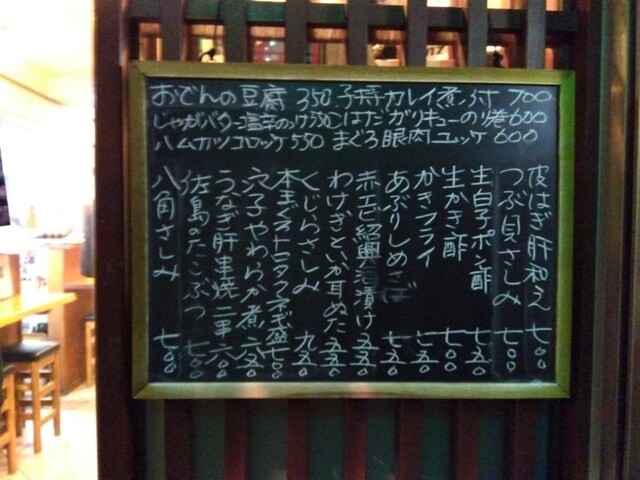 おでんの豆腐 350 子持カレイ煮付 700
じゃがバター塩辛のっけ550 はたガリキューのり巻600
ハムカツコロッケ 550 まぐろ眼肉ユッケ 600
皮はぎ肝和え 七〇〇
つぶ貝さしみ 七〇〇
生白子ポン酢 七五〇
生かき酢 七〇〇
かきフライ 七五〇
あぶりしめさば 七五〇
赤エビ紹興酒漬け 五五〇
わけぎといか耳ぬた 五五〇
くじらさしみ 九五〇
本まぐろトロタクネギ盛 七〇〇
穴子やわらか煮 六五〇
うなぎ肝串焼二串 六〇〇
佐島のたこぶつ 七〇〇
八角さしみ 七〇〇